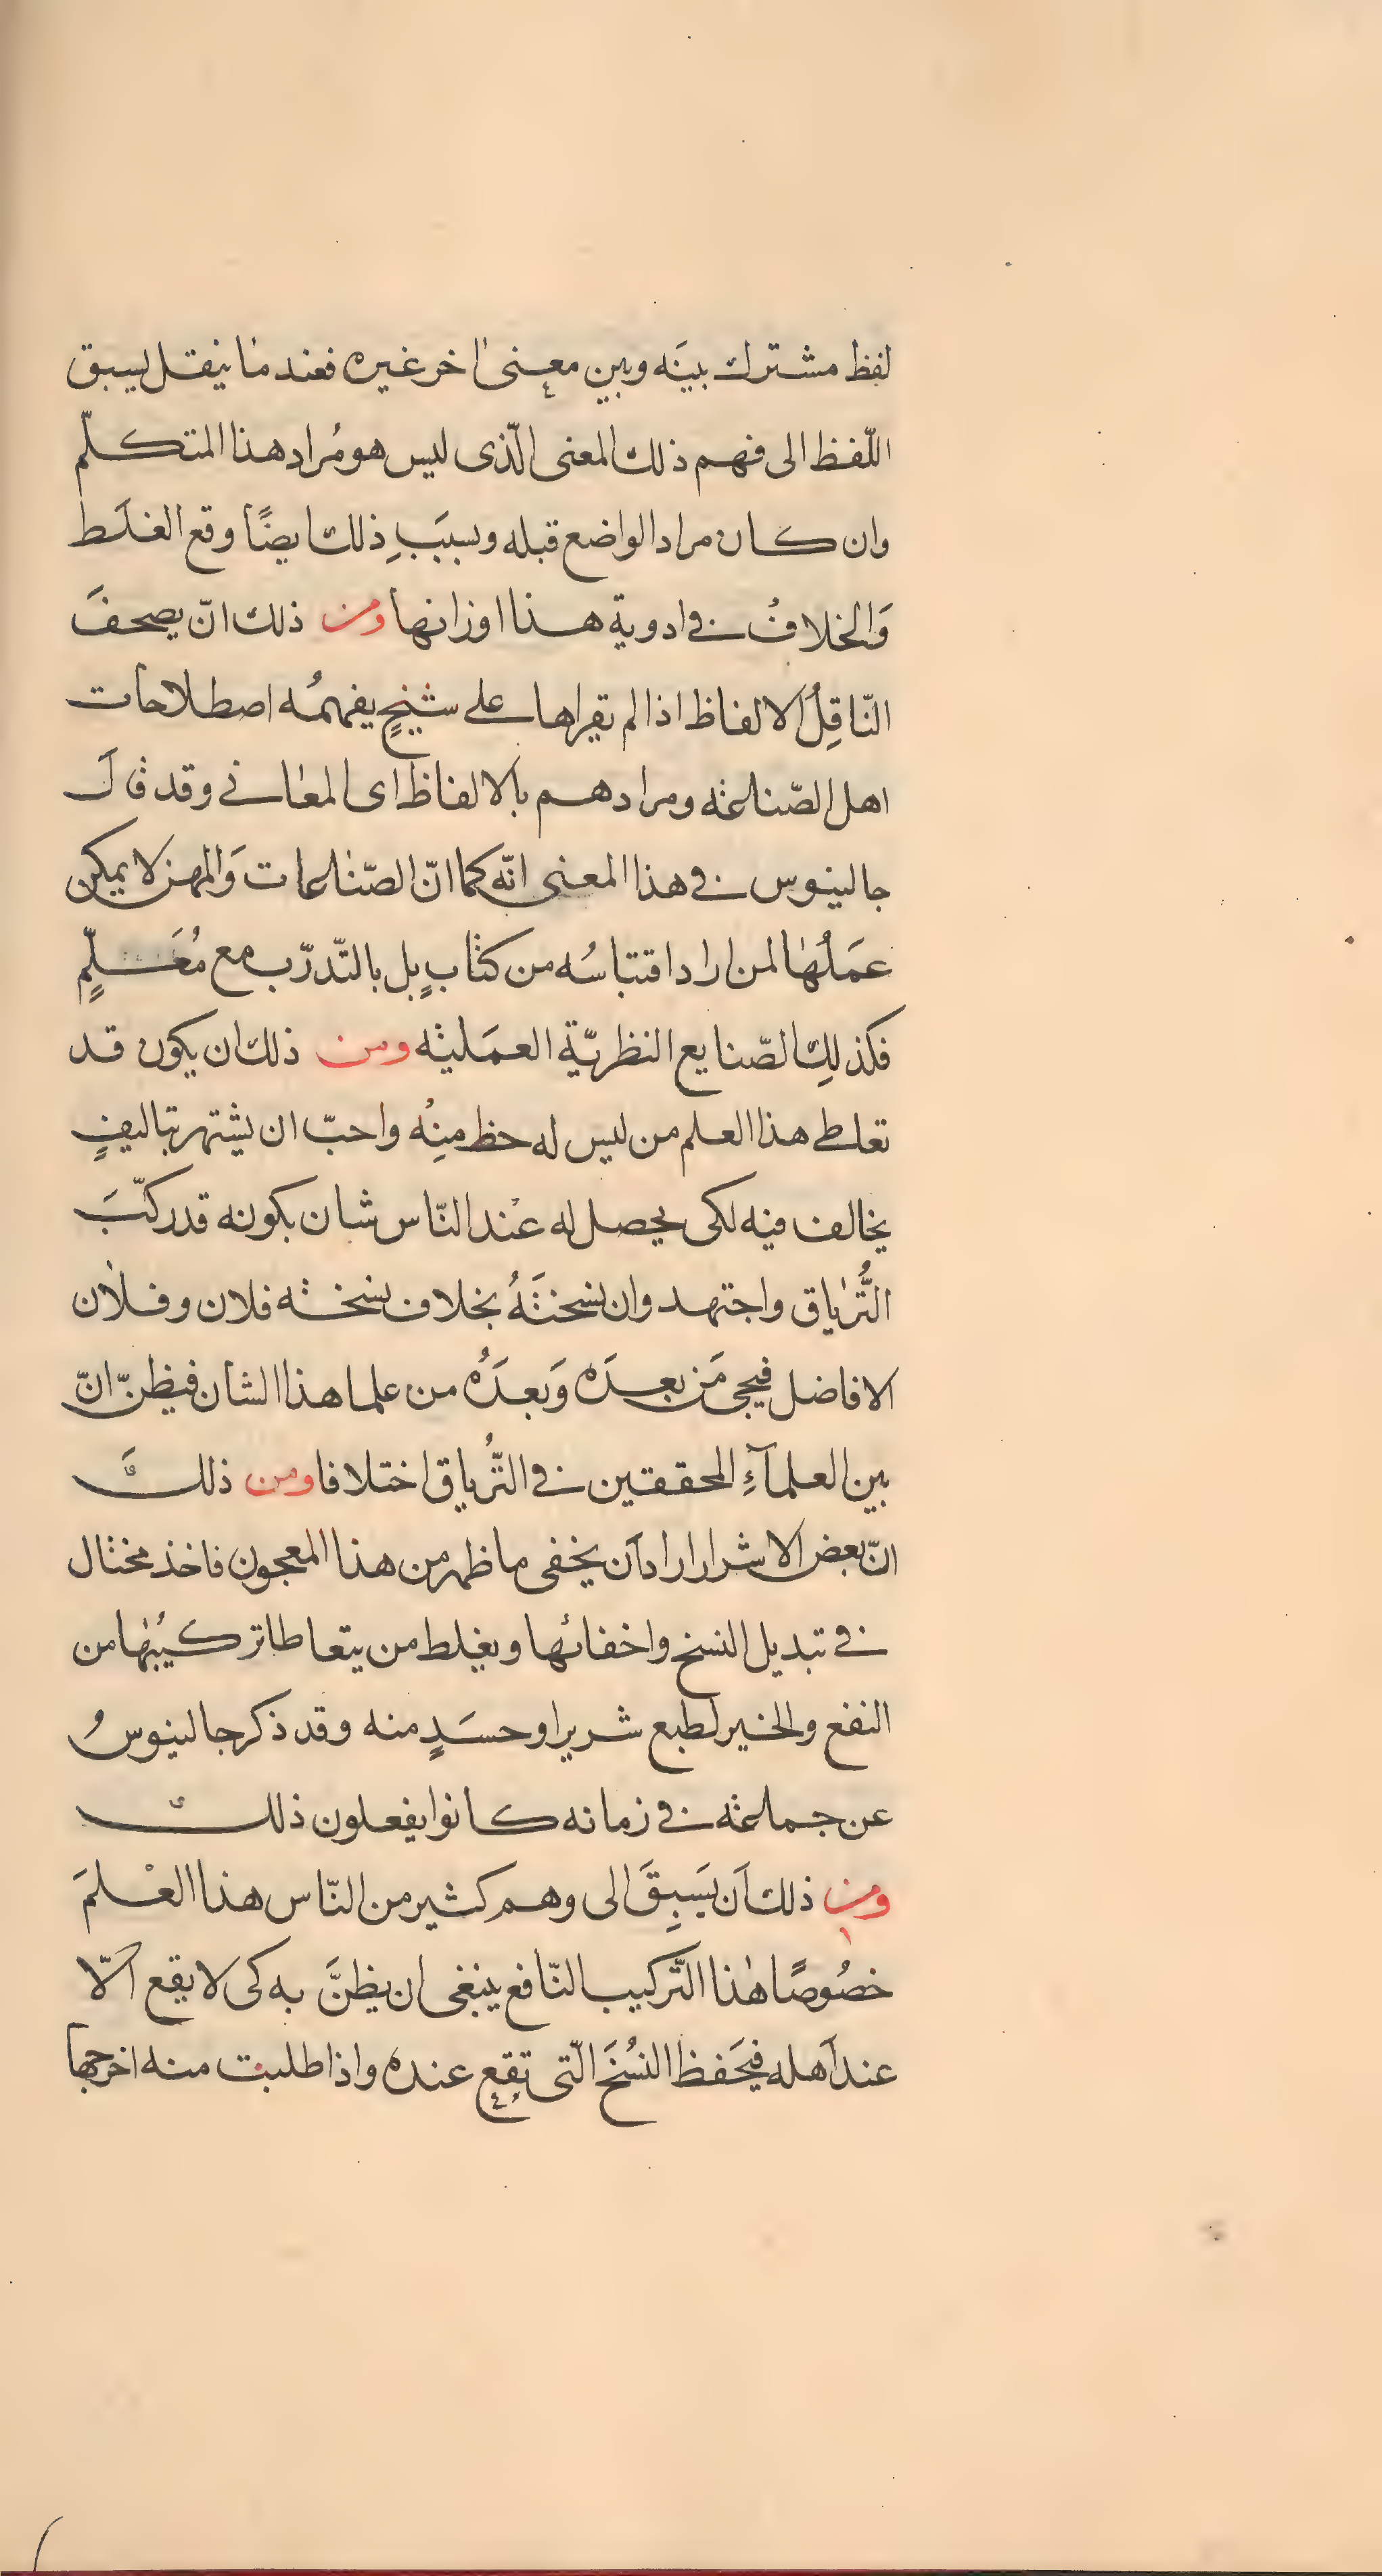 لفظ مشترك بينَه وبين معنىً اخر غيره فعند مٰا ينقل ليسبق
اللّفظ الى فهم ذلك المعنى الّذى ليس هو مُراد هذا المتكلّم
وان كان مراد الواضع قبله وبسبَبِ ذلك ايضًا وقع الغلَط
وَالخلافُ فى ادوية هذا اوزانها ومن ذلك انّ يصحفَ
النّاقِلُ الالفاظ اذا لم يقراها على شيخٍ يفهمُه اصطلاحات
اهل الصّناعة ومرادهم بالالفاظ اى المعٰانى وقد قالَ
جالينوس فى هذا المعنى انّه كما انّ الصّنٰاعات وَالمهن لا يمكن
عمَلُهٰا لمن اراد اقتباسُه من كتابٍ بل بالتّدرّب مع مُعَلّمٍ
فكذلِك الصّنايع النظريّة العمَلية ومن ذلك ان يكون قد
تعلطى هذا العلم من ليس له حظ منِهُ واحبّ ان يشتهر بتاليفٍ
يخالف فيه لكى يحصل له عنْد النّاس شان بكونه قد ركّبَ
التُّريٰاق واجتهد وان نسختَهُ بخلاف نسخة فلان وفلٰان
الافاضل فيجى مَن بعدَه وَبعدَهُ من علما هذا الشان فيظنّ انّ
بين العلمآءِ المحققين فى التُّرياق اختلافا ومن ذلكَ
انّ بعض الاشرار ارادَان يخفى ما ظهر من هذا المعجون فاخذ مختال
فى تبديل النسخ واخفائها ويغلط من يتعاطا تركيبُهٰا من
النفع والخير لطبع شريرا وحسَدٍ منه وقد ذكر جالينوسُ
عن جماعة فى زمانه كانوا يفعلون ذلك
ومن ذلك اَن يَسبِقَ الى وهم كثير من النّاس هذا العْلمَ
خصُوصًا هٰذا التَّركيب النّافع ينبغى ان يظنَّ به كى لا يقع الّا
عند اَهله فيحَفظ النسُخَ الّتى تقع عنده واذا طلبت منه اخرجها